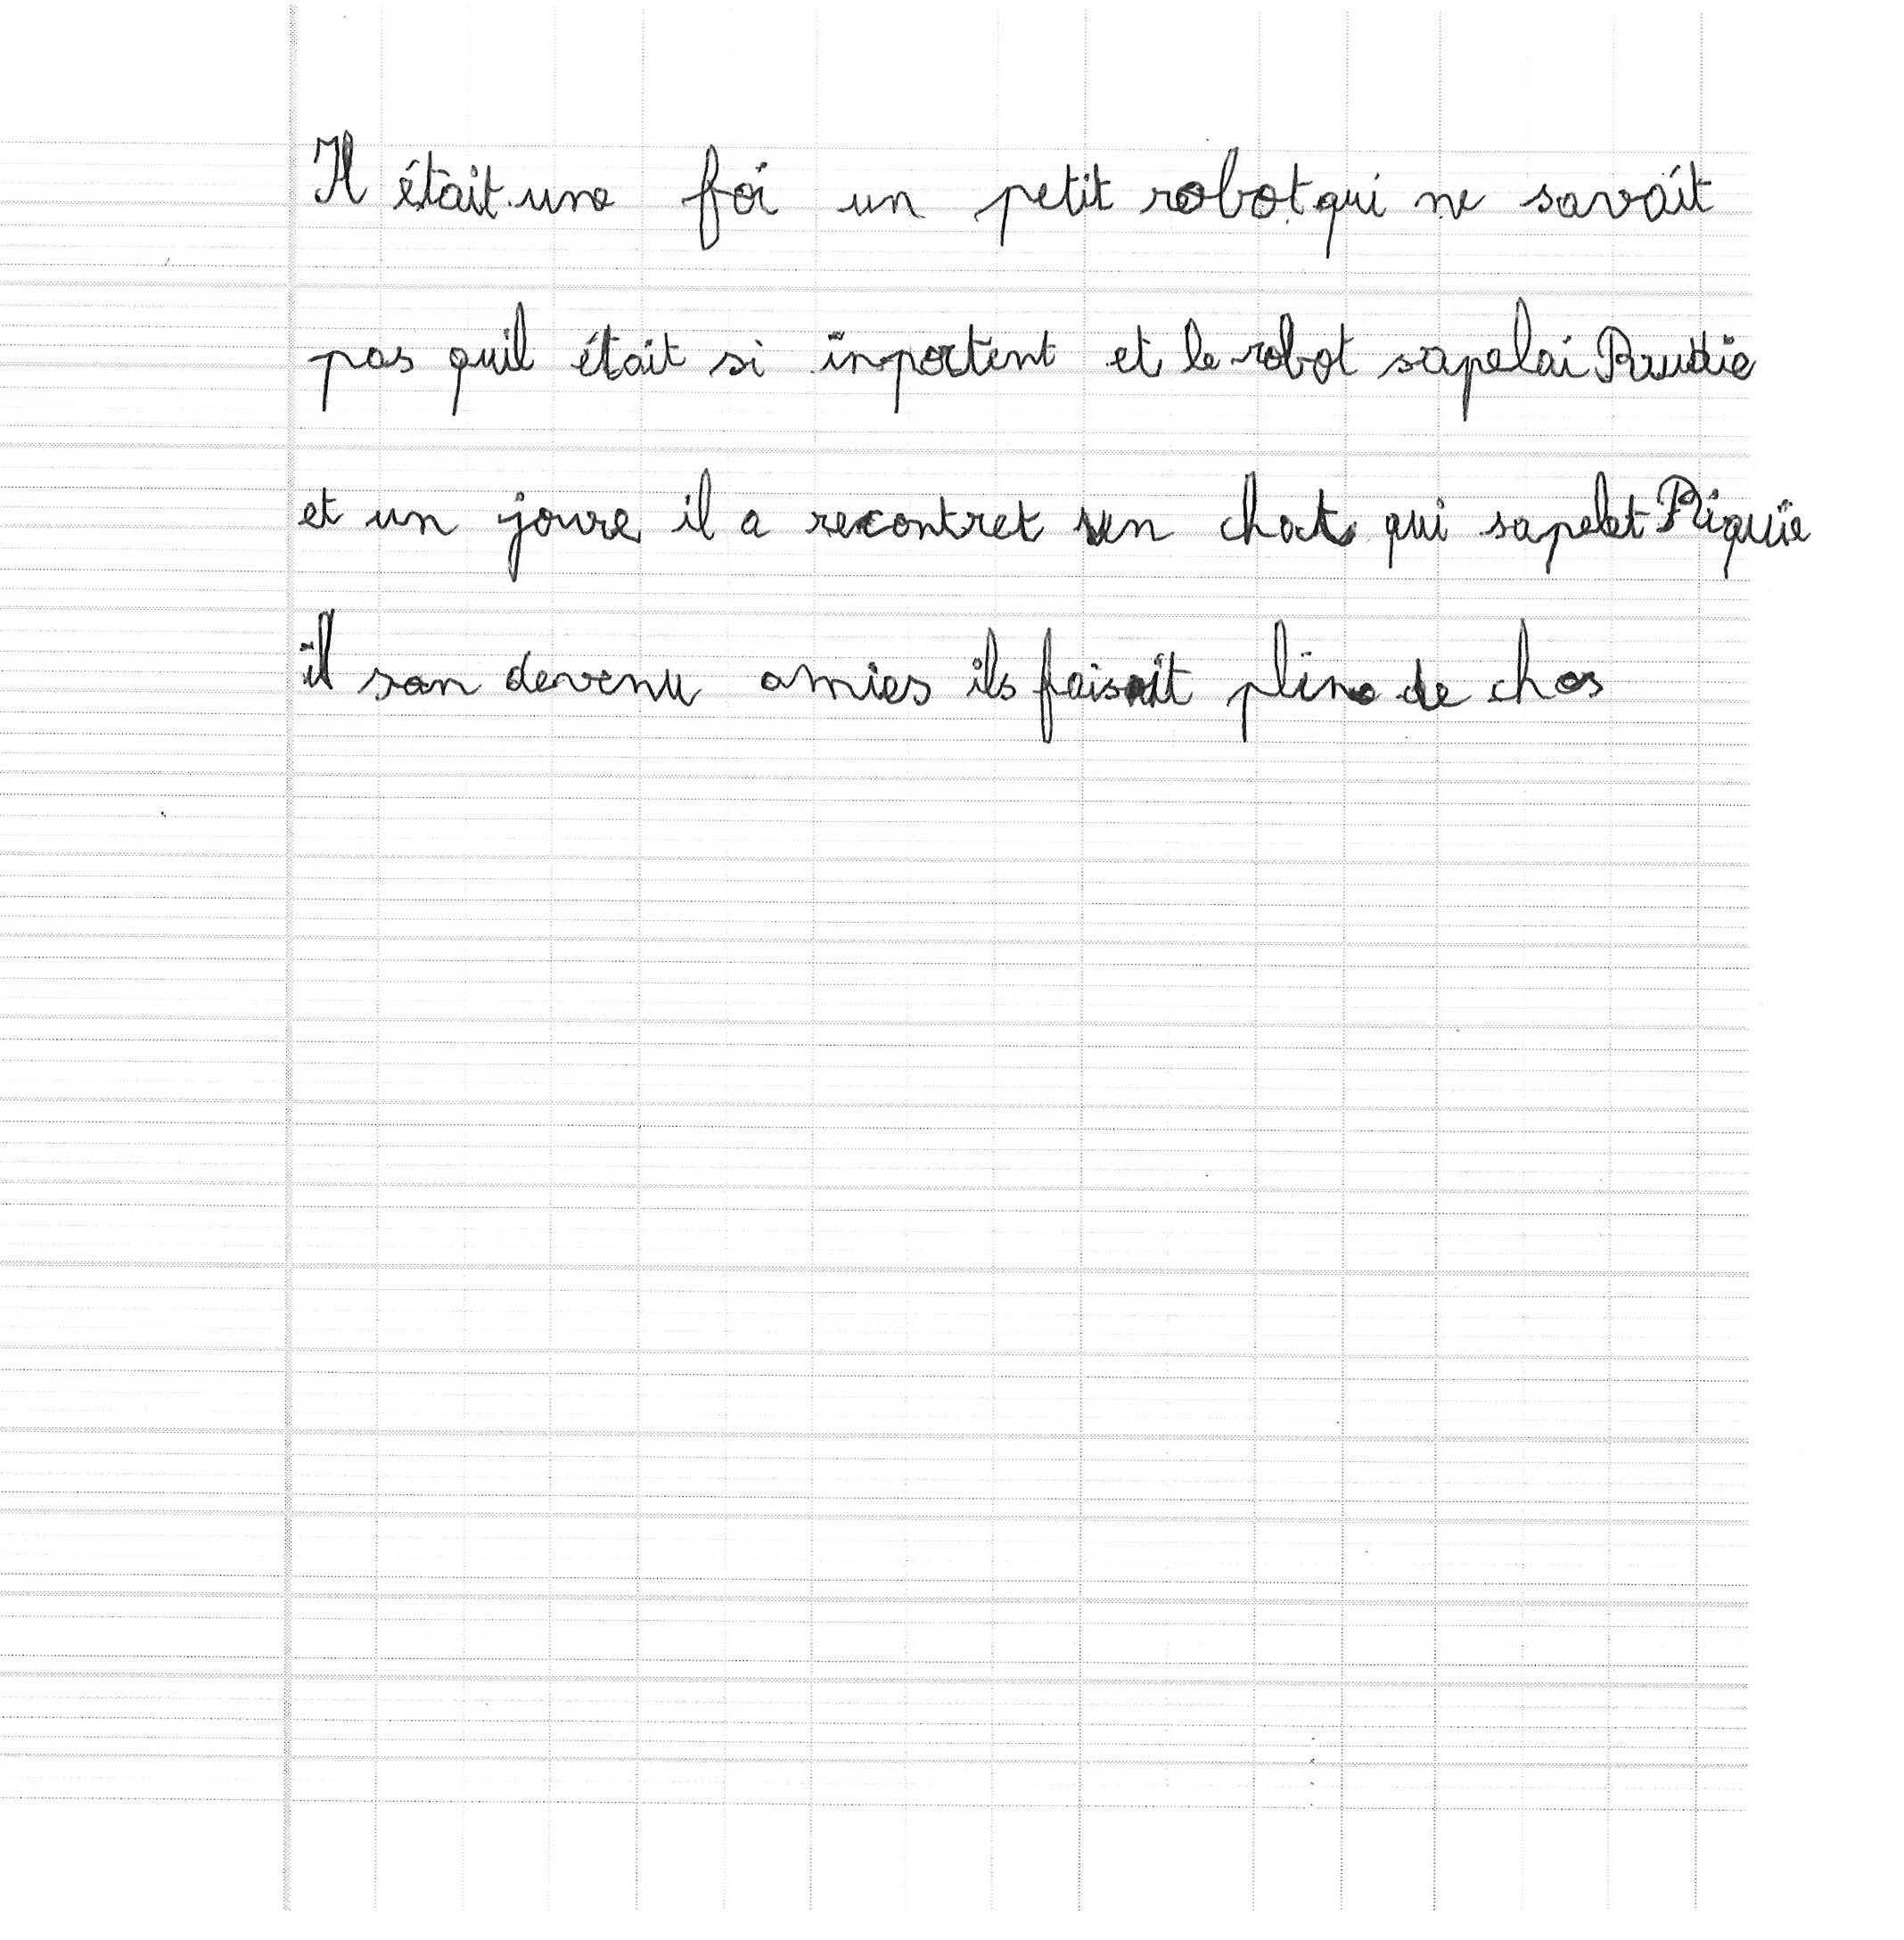 Il était une foi un petit robot qui ne savait
pas quil était si inportent et le robot sapelai Rudie
et un joure il a recontret un chat qui sapelet Riquie
il son devenu amies ils faisait pline de chos